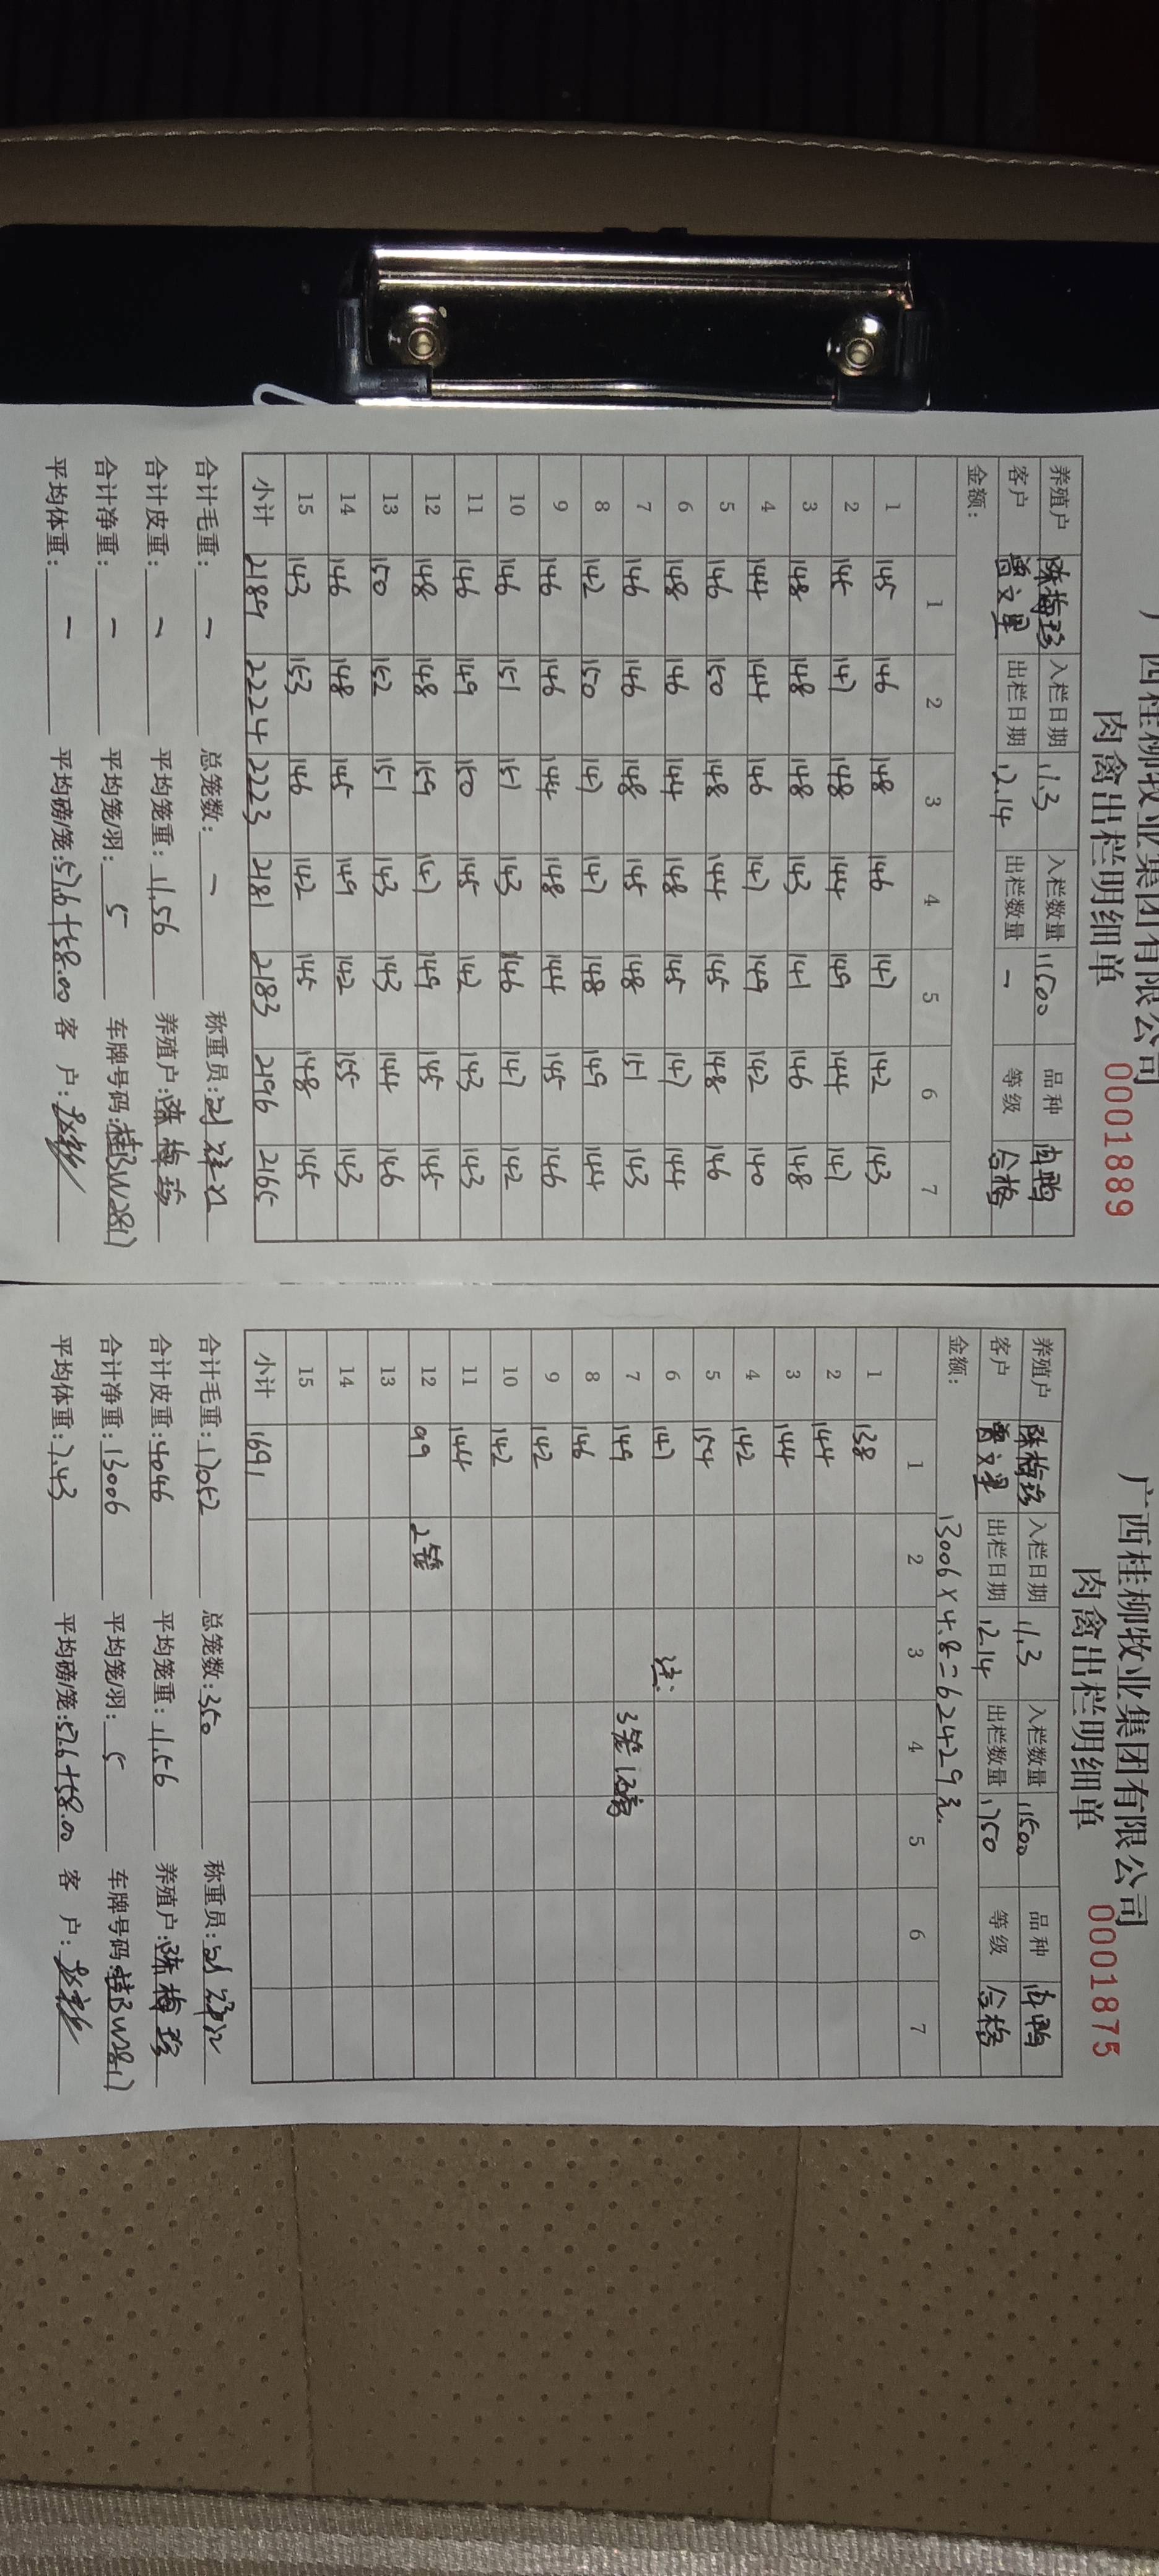 广西桂柳牧业集团有限公司
肉禽出栏明细单
0001889
养殖户 陈梅珍 入栏日期 11.3 入栏数量 11500 品种 肉鸭
客户 曾文星 出栏日期 12.14 出栏数量 一 等级 合格
金额:
1 2 3 4 5 6 7
1 145 146 148 146 147 142 143
2 145 147 148 144 149 144 147
3 148 148 148 143 141 146 148
4 144 144 146 147 149 142 140
5 146 150 148 144 145 148 146
6 148 146 144 148 145 147 144
7 146 146 148 145 148 151 143
8 142 150 147 147 148 149 144
9 146 146 144 148 144 145 146
10 146 151 151 143 146 147 142
11 146 149 150 145 142 143 143
12 148 148 159 147 149 145 145
13 150 152 151 143 143 144 146
14 146 148 145 149 142 155 143
15 143 153 146 142 145 148 145
小计 2189 2224 2223 2181 2183 2196 2165
合计毛重: 一 总笼数: 一 称重员:
合计皮重: 一 平均笼重: 11.56 养殖户: 陈梅珍
合计净重: 一 平均笼/羽: 5 车牌号码: 桂BW2817
平均体重: 一 平均磅/笼: 57.6+58.00 客 户:
广西桂柳牧业集团有限公司
肉禽出栏明细单
0001875
养殖户 陈梅珍 入栏日期 11.3 入栏数量 11500 品种 肉鸭
客户 曾文星 出栏日期 12.14 出栏数量 1750 等级 合格
金额: 13006×4.8=62429元.
1 2 3 4 5 6 7
1 138
2 144
3 144
4 142
5 154
6 147 注:
7 149 3笼/磅
8 146
9 142
10 142
11 144
12 99 2笼
13
14
15
小计 1691
合计毛重: 17052 总笼数: 350 称重员:
合计皮重: 4046 平均笼重: 11.56 养殖户: 陈梅珍
合计净重: 13006 平均笼/羽: 5 车牌号码: 桂BW2817
平均体重: 7.43 平均磅/笼: 57.6+58.00 客 户: